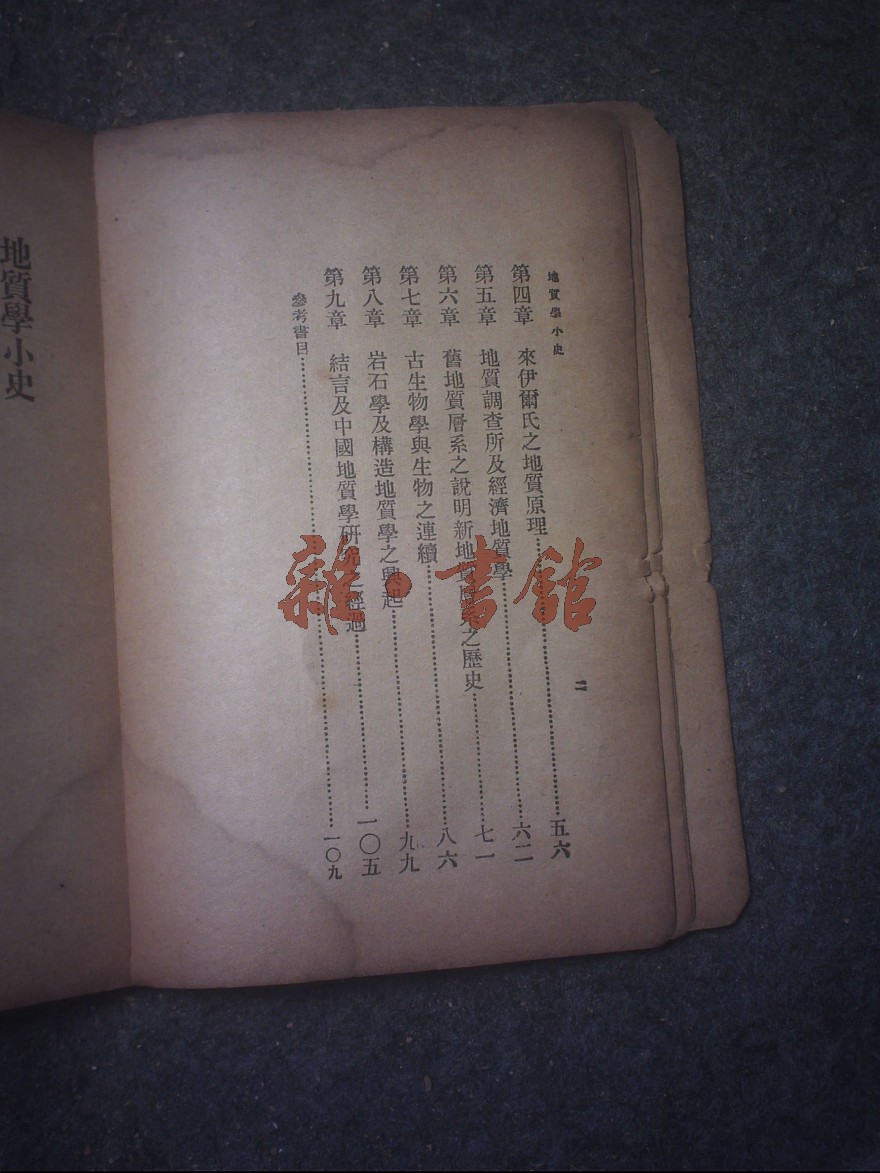 地質學小史
二
第四章　來伊爾氏之地質原理……五六
第五章　地質調查所及經濟地質學……六二
第六章　舊地質層系之說明新地質層系之歷史……七一
第七章　古生物學與生物之連續……八六
第八章　岩石學及構造地質學之興起……九九
第九章　結言及中國地質學研究之經過……一〇五
參考書目……一〇九
地質學小史
雜·書館